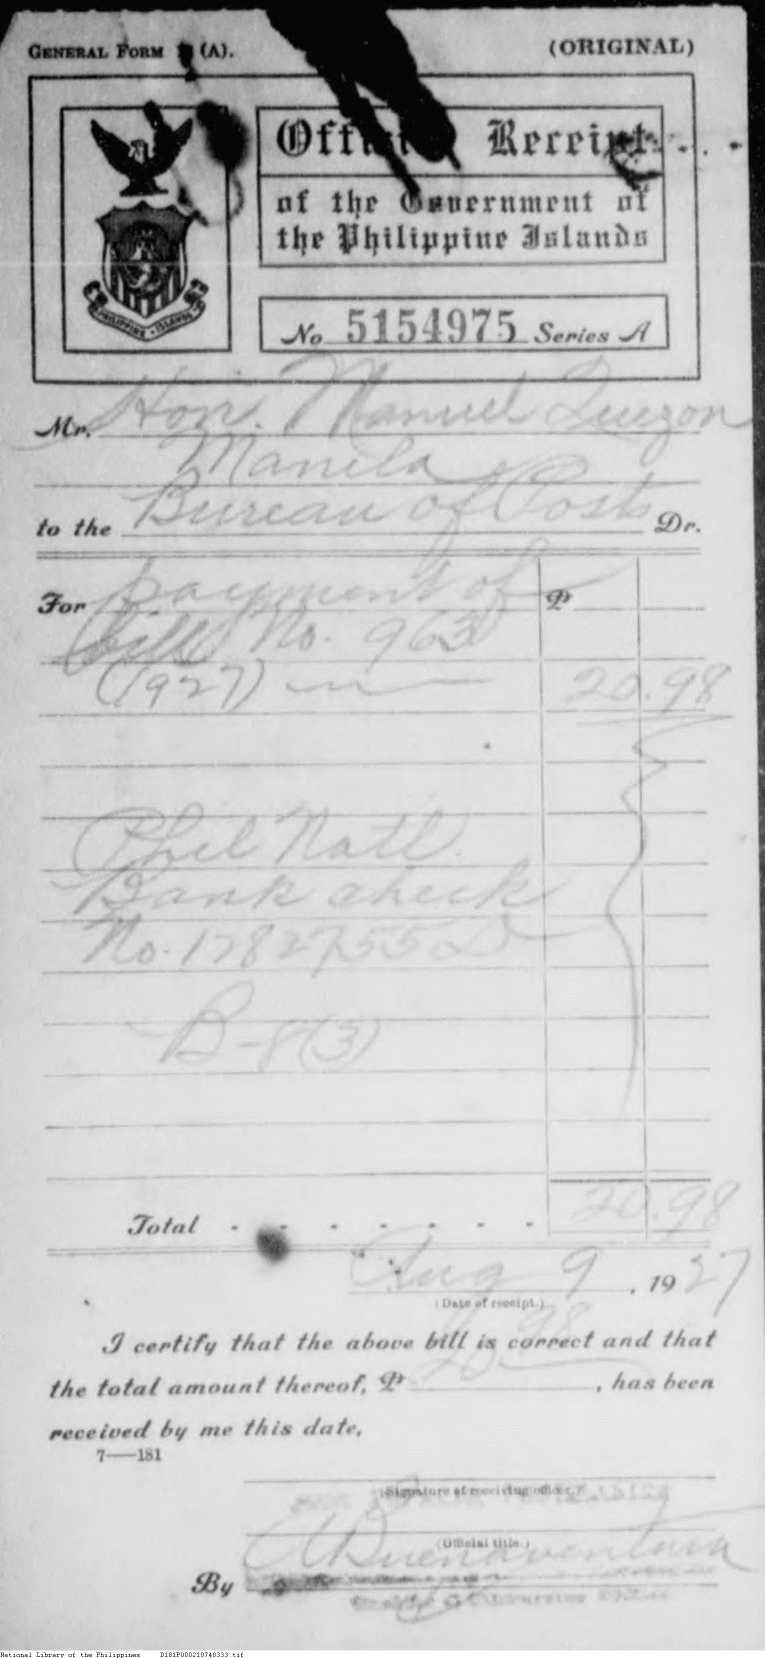 GENERAL FORM (A).
(ORIGINAL)
Official Receipt
of the Government of
the Philippine Islands
PHILIPPINE ISLANDS
No 5154975 Series A
Mr. Hon. Manuel Quezon
Manila
to the Bureau of Posts Dr.
For payment of ₱
bill No. 963
(1927) 20.98
Phil Natl.
Bank check
No. 1782755
B-8(3)
Total - - - - - - - 20.98
Aug 9, 1927
(Date of receipt.)
I certify that the above bill is correct and that
the total amount thereof, ₱ 20.98, has been
received by me this date.
7—181
(Signature of receiving officer.)
(Official title.)
Buenaventura
By
National Library of the Philippines D181P000210740333.tif